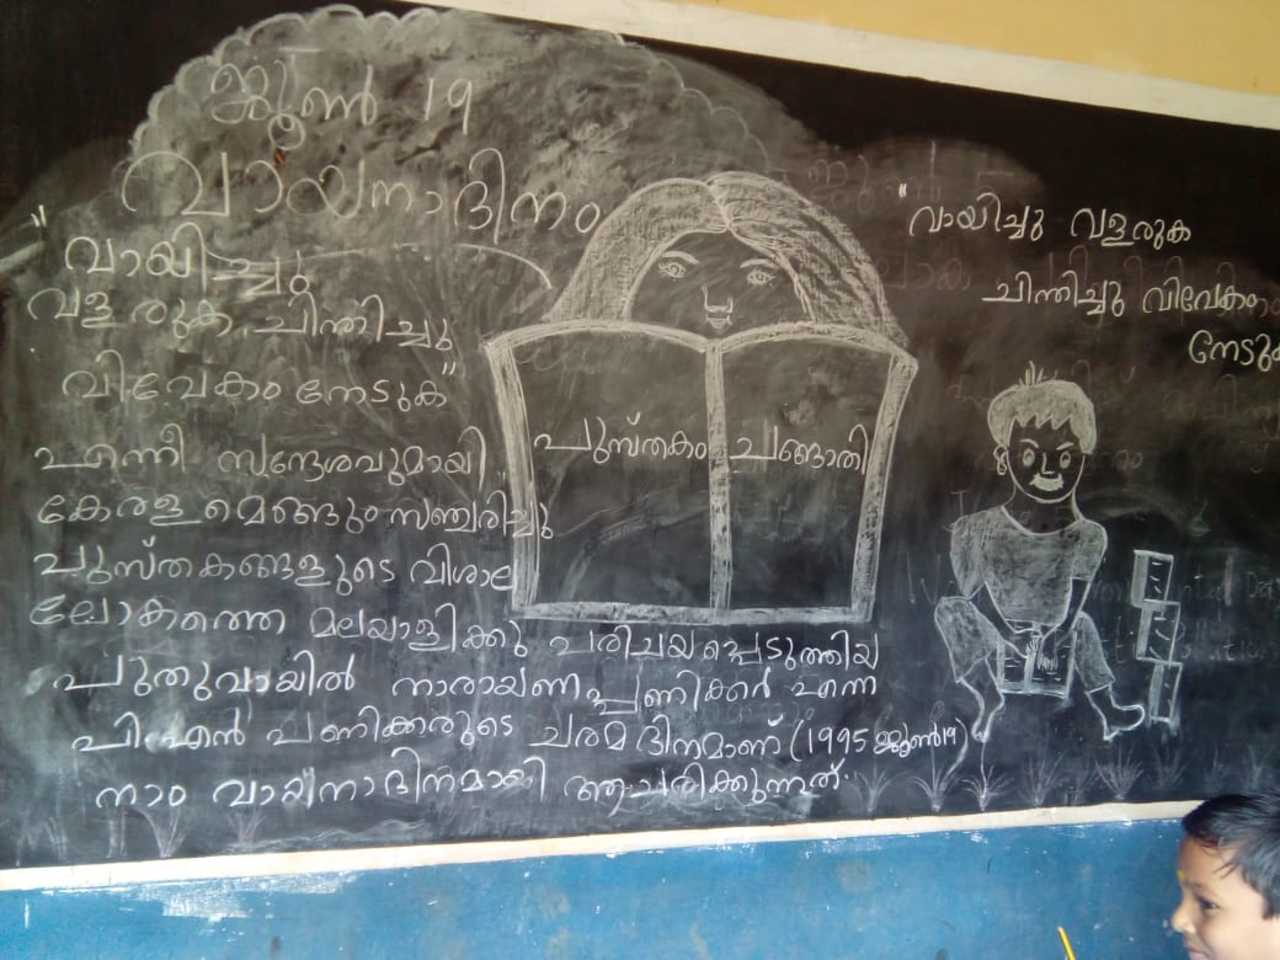 ജൂൺ 19
വായനാദിനം
"വായിച്ചു
വളരുക, ചിന്തിച്ചു
വിവേകം നേടുക"
എന്നീ സന്ദേശവുമായി
കേരളമെങ്ങും സഞ്ചരിച്ചു
പുസ്തകങ്ങളുടെ വിശാല
ലോകത്തെ മലയാളിക്കു പരിചയപ്പെടുത്തിയ
പുതുവായിൽ നാരായണപ്പണിക്കർ എന്ന
പി.എൻ പണിക്കരുടെ ചരമദിനമാണ് (1995 ജൂൺ 19)
നാം വായനാദിനമായി ആചരിക്കുന്നത്.
പുസ്തകം ചങ്ങാതി
"വായിച്ചു വളരുക
ചിന്തിച്ചു വിവേകം
നേടുക